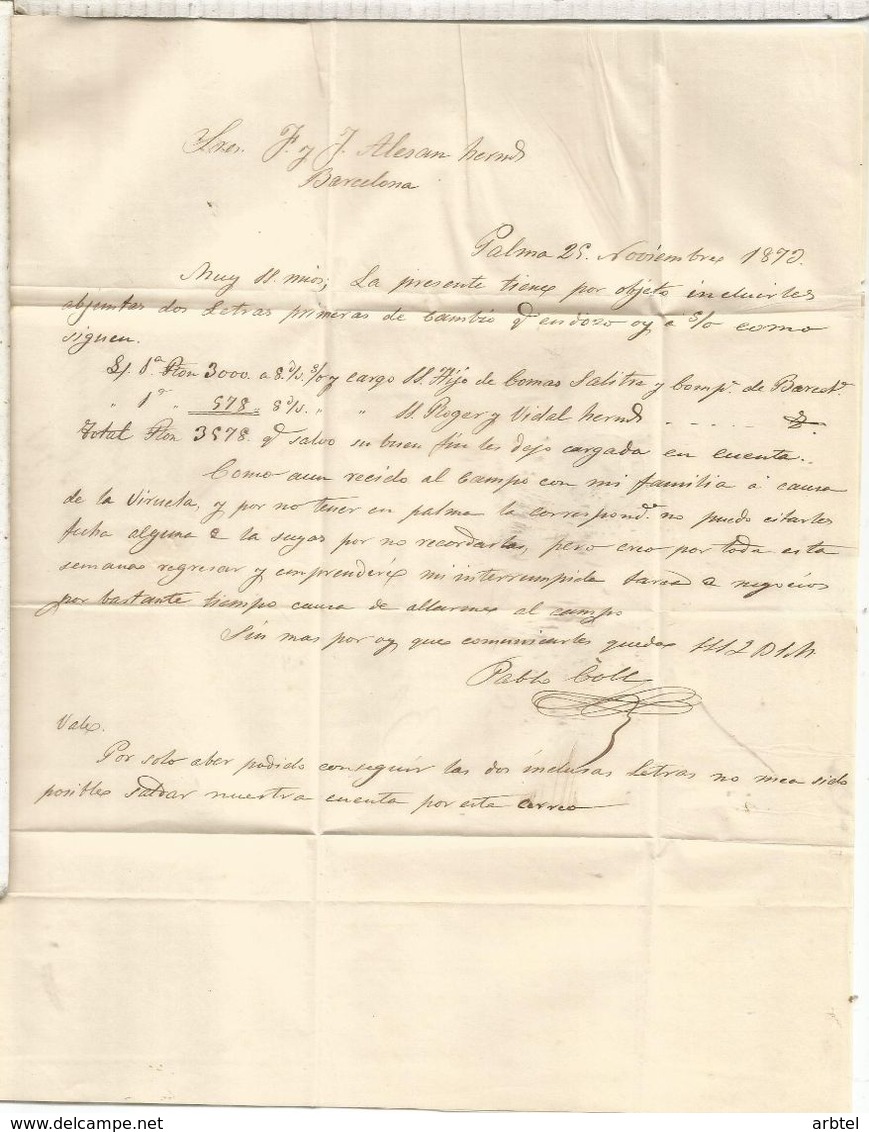 Sres. F. y J. Alesan hermˢ
Barcelona
Palma 25. Noviembre 1873.
Muy SS. mios; La presente tiene por objeto incluirles
abjuntas dos Letras primeras de Cambio qᵉ endozo oy á s/o como
siguen.
1ª Pton 3000. a 8 d/v. s/o y cargo SS. Hijo de Comas Salitre y Compª. de Barcelª.
" 1ª " 578 " 8 d/v. " " SS. Roger y Vidal hermˢ . . . . . .
Total Pton 3578. qᵉ salvo su buen fin les dejo cargada en cuenta..
Como aun recido al Campo con mi familia á causa
de la Viruela, y por no tener en palma la correspondª. no puedo citarles
fecha alguna a la suyas por no recordarlas, pero creo por toda esta
semana regresar y emprenderé mi interrumpida tarea a negocios
por bastante tiempo causa de allarme al campo
Sin mas por oy que comunicarles queda
Pablo Coll
Vale.
Por solo aber podido conseguir las dos inclusas Letras no mea sido
posible saldar nuestra cuenta por este correo
arbtel